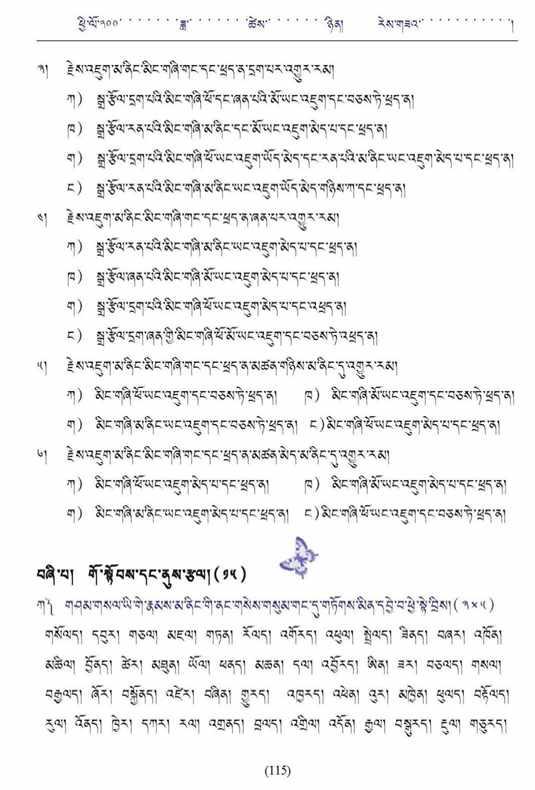 ཕྱི་ལོ་༢༠༠ ཟླ་ ཚེས་ ཉིན། རེས་གཟའ་ །
༣། རྗེས་འཇུག་མ་ནིང་མིང་གཞི་གང་དང་ཕྲད་ན་དྲག་པར་འགྱུར་རམ།
ཀ) སྒྲ་རྩོལ་དྲག་པའི་མིང་གཞི་ཕོ་དང་ཞན་པའི་མོ་ཡང་འཇུག་དང་བཅས་ཏེ་ཕྲད་ན།
ཁ) སྒྲ་རྩོལ་རན་པའི་མིང་གཞི་མ་ནིང་དང་མོ་ཡང་འཇུག་མེད་པ་དང་ཕྲད་ན།
ག) སྒྲ་རྩོལ་དྲག་པའི་མིང་གཞི་ཕོ་ཡང་འཇུག་ཡོད་མེད་དང་རན་པའི་མ་ནིང་ཡང་འཇུག་མེད་པ་དང་ཕྲད་ན།
ང) སྒྲ་རྩོལ་རན་པའི་མིང་གཞི་མ་ནིང་ཡང་འཇུག་ཡོད་མེད་གཉིས་ཀ་དང་ཕྲད་ན།
༤། རྗེས་འཇུག་མ་ནིང་མིང་གཞི་གང་དང་ཕྲད་ན་ཞན་པར་འགྱུར་རམ།
ཀ) སྒྲ་རྩོལ་རན་པའི་མིང་གཞི་མ་ནིང་ཡང་འཇུག་མེད་པ་དང་ཕྲད་ན།
ཁ) སྒྲ་རྩོལ་ཞན་པའི་མིང་གཞི་མོ་ཡང་འཇུག་མེད་པ་དང་ཕྲད་ན།
ག) སྒྲ་རྩོལ་དྲག་པའི་མིང་གཞི་ཕོ་ཡང་འཇུག་མེད་པ་དང་འཕྲད་ན།
ང) སྒྲ་རྩོལ་དྲག་ཞན་གྱི་མིང་གཞི་ཕོ་མོ་ཡང་འཇུག་དང་བཅས་ཏེ་འཕྲད་ན།
༥། རྗེས་འཇུག་མ་ནིང་མིང་གཞི་གང་དང་ཕྲད་ན་མཚན་གཉིས་མ་ནིང་དུ་འགྱུར་རམ།
ཀ) མིང་གཞི་ཕོ་ཡང་འཇུག་དང་བཅས་ཏེ་ཕྲད་ན། ཁ) མིང་གཞི་མོ་ཡང་འཇུག་དང་བཅས་ཏེ་ཕྲད་ན།
ག) མིང་གཞི་མ་ནིང་ཡང་འཇུག་དང་བཅས་ཏེ་ཕྲད་ན། ང) མིང་གཞི་ཕོ་ཡང་འཇུག་མེད་པ་དང་ཕྲད་ན།
༦། རྗེས་འཇུག་མ་ནིང་མིང་གཞི་གང་དང་ཕྲད་ན་མཚན་མེད་མ་ནིང་དུ་འགྱུར་རམ།
ཀ) མིང་གཞི་ཕོ་ཡང་འཇུག་མེད་པ་དང་ཕྲད་ན། ཁ) མིང་གཞི་མོ་ཡང་འཇུག་མེད་པ་དང་ཕྲད་ན།
ག) མིང་གཞི་མ་ནིང་ཡང་འཇུག་མེད་པ་དང་ཕྲད་ན། ང) མིང་གཞི་ཕོ་ཡང་འཇུག་དང་བཅས་ཏེ་ཕྲད་ན།
བཞི་པ། གོ་སྟོབས་དང་ནུས་རྩལ། (༡༥)
ཀ༽ གཤམ་གསལ་ཡི་གེ་རྣམས་མ་ནིང་གི་ནང་གསེས་གསུམ་གང་དུ་གཏོགས་མིན་དབྱེ་བ་ཕྱེ་སྟེ་བྲིས། (༣×༥)
གསོལད། དབུར། གཅལ། མཇལ། གཏན། རོལད། འགོརད། འཕུལ། སྤེལད། ཟིནད། བཞར། འཁོན།
མཆིལ། བྱོནད། ཚེར། མཐུན། ཡོལ། ཕནད། མཆན། དལ། འབྱོརད། ཨིན། ཟར། བཅལད། གསལ།
བརྒྱལད། ཞོར། བསྐྱོནད། འཛེར། བཞིན། གྱུརད། འཁྱརད། འཕེན། འུར། མཁྱེན། ཕུལད། བརྟོལད།
རུལ། འོནད། ཁྱེར། དཀར། རལ། འགྲནད། བྲལད། འགྲིལ། འདོན། རྒྱལ། བསྒྱུརད། རྔུལ། གཅུརད།
(115)